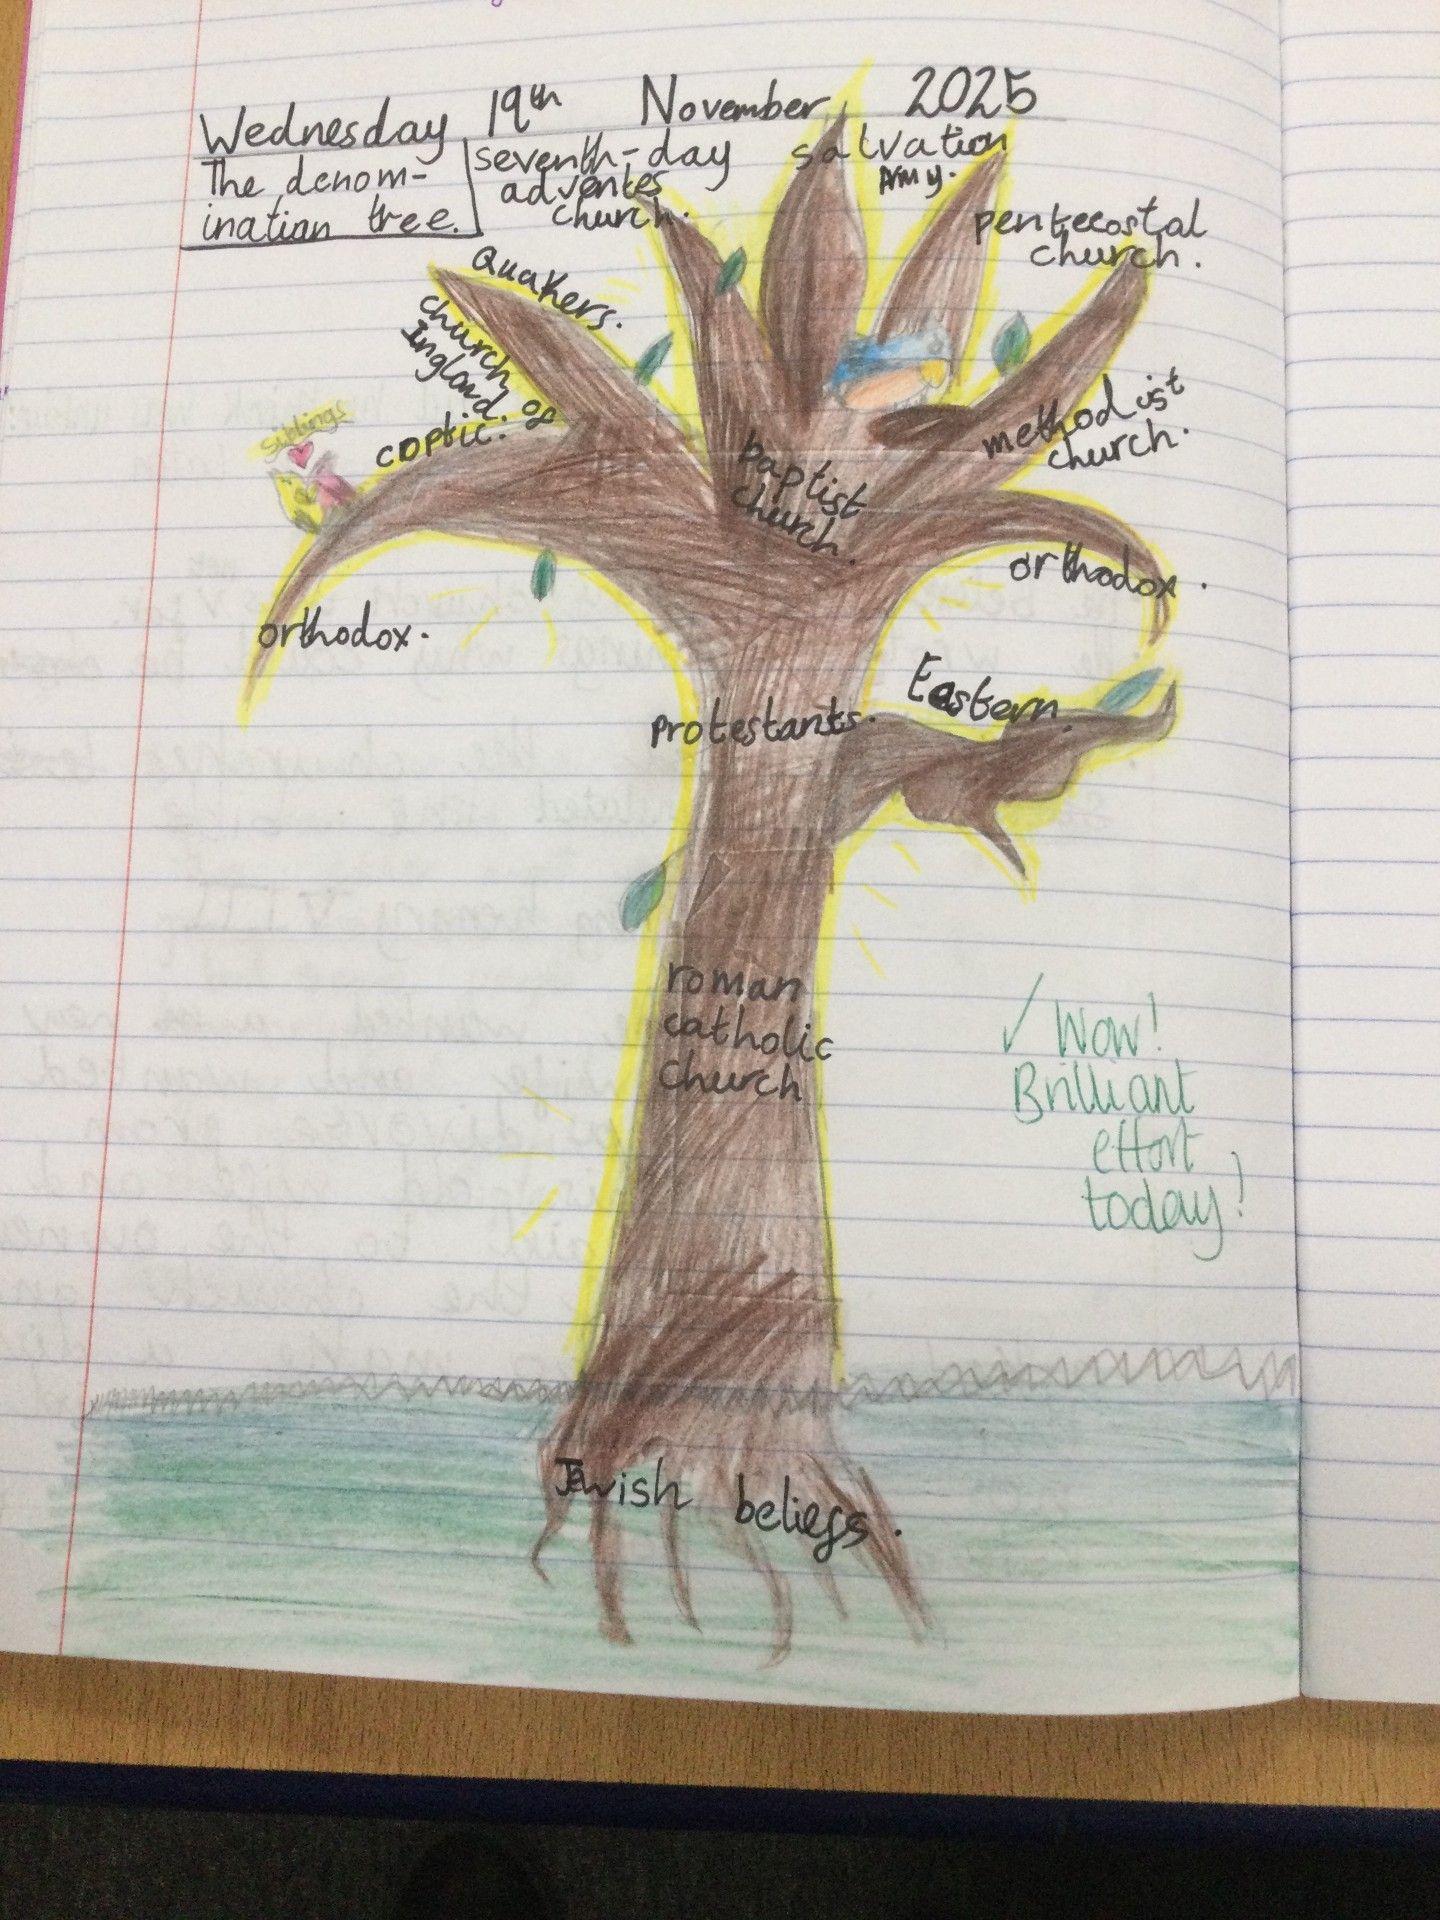 Wednesday 19th November 2025
The denom-
ination tree.
seventh-day
adventes
church.
salvation
Army.
pentecostal
church.
Quakers.
church of
Ingland.
coptic.
siblings
methodist
church.
baptist
church.
orthodox.
orthodox.
Eastern.
Protestants.
roman
catholic
church
✓ Wow!
Brilliant
effort
today!
Jewish beliefs.